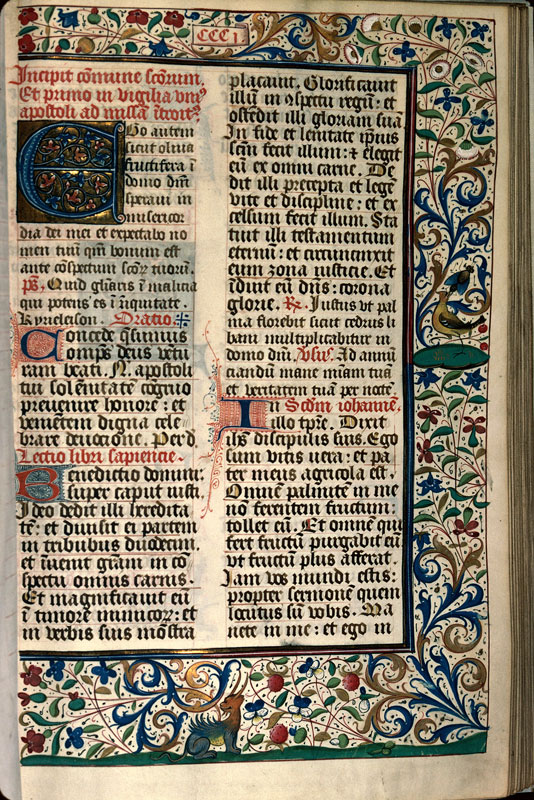 CCCI
Incipit cōmune scōrum.
Et primo in vigilia vniꝰ
apostoli ad missā ītroitꝰ
Ego autem
sicut oliua
fructifera ī
domo dn̄i
speraui in
misericor
dia dei mei et expectabo no
men tuū qm̄ bonum est
ante cōspectum scōꝝ tuorū.
p̄s. Quid gl̄iaris ī malicia
qui potens es ī iniquitate.
Kyrieleison. Oratio
Concede q̄sumus
omp̄s deus ventu
ram beati. N. apostoli
tui solēnitatē cōgruo
preuenire honore: et
venientem digna cele
brare deuocione. Per d.
Lectio libri sapiencie.
Benedictio domini
super caput iusti.
Ideo dedit illi heredita
tē: et diuisit ei partem
in tribubus duodecim.
et īuenit grām in cō
spectu omnis carnis.
Et magnificauit eū
ī timore inimicoꝝ: et
in verbis suis mōstra
placauit. Glorificauit
illū in ꝯspectu regū: et
ostēdit illi gloriam suā
In fide et lenitate ip̄ius
scm̄ fecit illum: ⁊ elegit
eū ex omni carne. De
dit illi precepta et legē
vite et discipline: et ex
celsum fecit illum. Sta
tuit illi testamentum
eternū: et circumcinxit
eum zona iusticie. Et
īduit eū dn̄s: corona
glorie. R. Iustus vt pal
ma florebit sicut cedrus li
bani multiplicabitur in
domo dn̄i. Vsus. Ad annū
ciandū mane mīam tuā
et veritatem tuā per nocte.
Scd̄m iohannē.
In illo tp̄re. Dixit
ih̄s discipulis suis. Ego
sum vitis uera: et pa
ter meus agricola est.
Omnē palmitē in me
nō ferentem fructum:
tollet eū. Et omnē qui
fert fructū purgabit eū
vt fructū plus afferat.
Iam vos mundi estis:
propter sermonē quem
locutus sū vobis. Ma
nete in me: et ego in